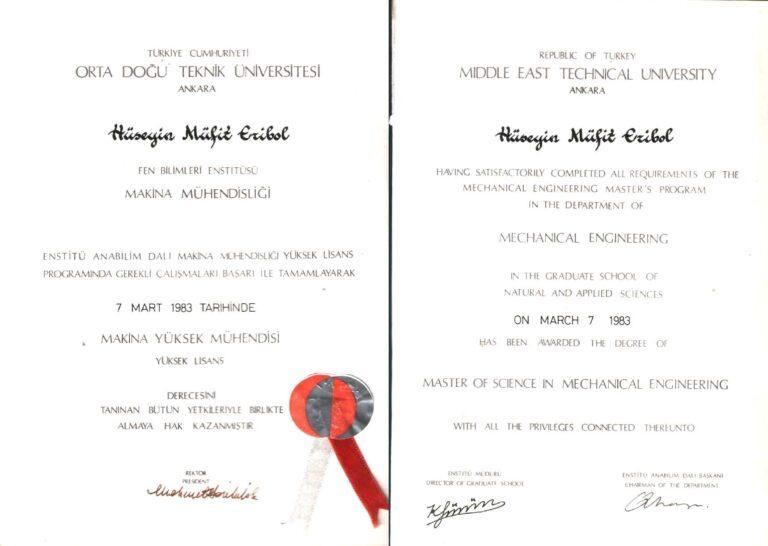 TÜRKİYE CUMHURİYETİ
ORTA DOĞU TEKNİK ÜNİVERSİTESİ
ANKARA
Hüseyin Müfit Eribol
FEN BİLİMLERİ ENSTİTÜSÜ
MAKİNA MÜHENDİSLİĞİ
ENSTİTÜ ANABİLİM DALI MAKİNA MÜHENDİSLİĞİ YÜKSEK LİSANS
PROGRAMINDA GEREKLİ ÇALIŞMALARI BAŞARI İLE TAMAMLAYARAK
7 MART 1983 TARİHİNDE
MAKİNA YÜKSEK MÜHENDİSİ
YÜKSEK LİSANS
DERECESİNİ
TANINAN BÜTÜN YETKİLERİYLE BİRLİKTE
ALMAYA HAK KAZANMIŞTIR
REKTÖR
PRESIDENT
REPUBLIC OF TURKEY
MIDDLE EAST TECHNICAL UNIVERSITY
ANKARA
Hüseyin Müfit Eribol
HAVING SATISFACTORILY COMPLETED ALL REQUIREMENTS OF THE
MECHANICAL ENGINEERING MASTER'S PROGRAM
IN THE DEPARTMENT OF
MECHANICAL ENGINEERING
IN THE GRADUATE SCHOOL OF
NATURAL AND APPLIED SCIENCES
ON MARCH 7 1983
HAS BEEN AWARDED THE DEGREE OF
MASTER OF SCIENCE IN MECHANICAL ENGINEERING
WITH ALL THE PRIVILEGES CONNECTED THEREUNTO
ENSTİTÜ MÜDÜRÜ
DIRECTOR OF GRADUATE SCHOOL
ENSTİTÜ ANABİLİM DALI BAŞKANI
CHAIRMAN OF THE DEPARTMENT